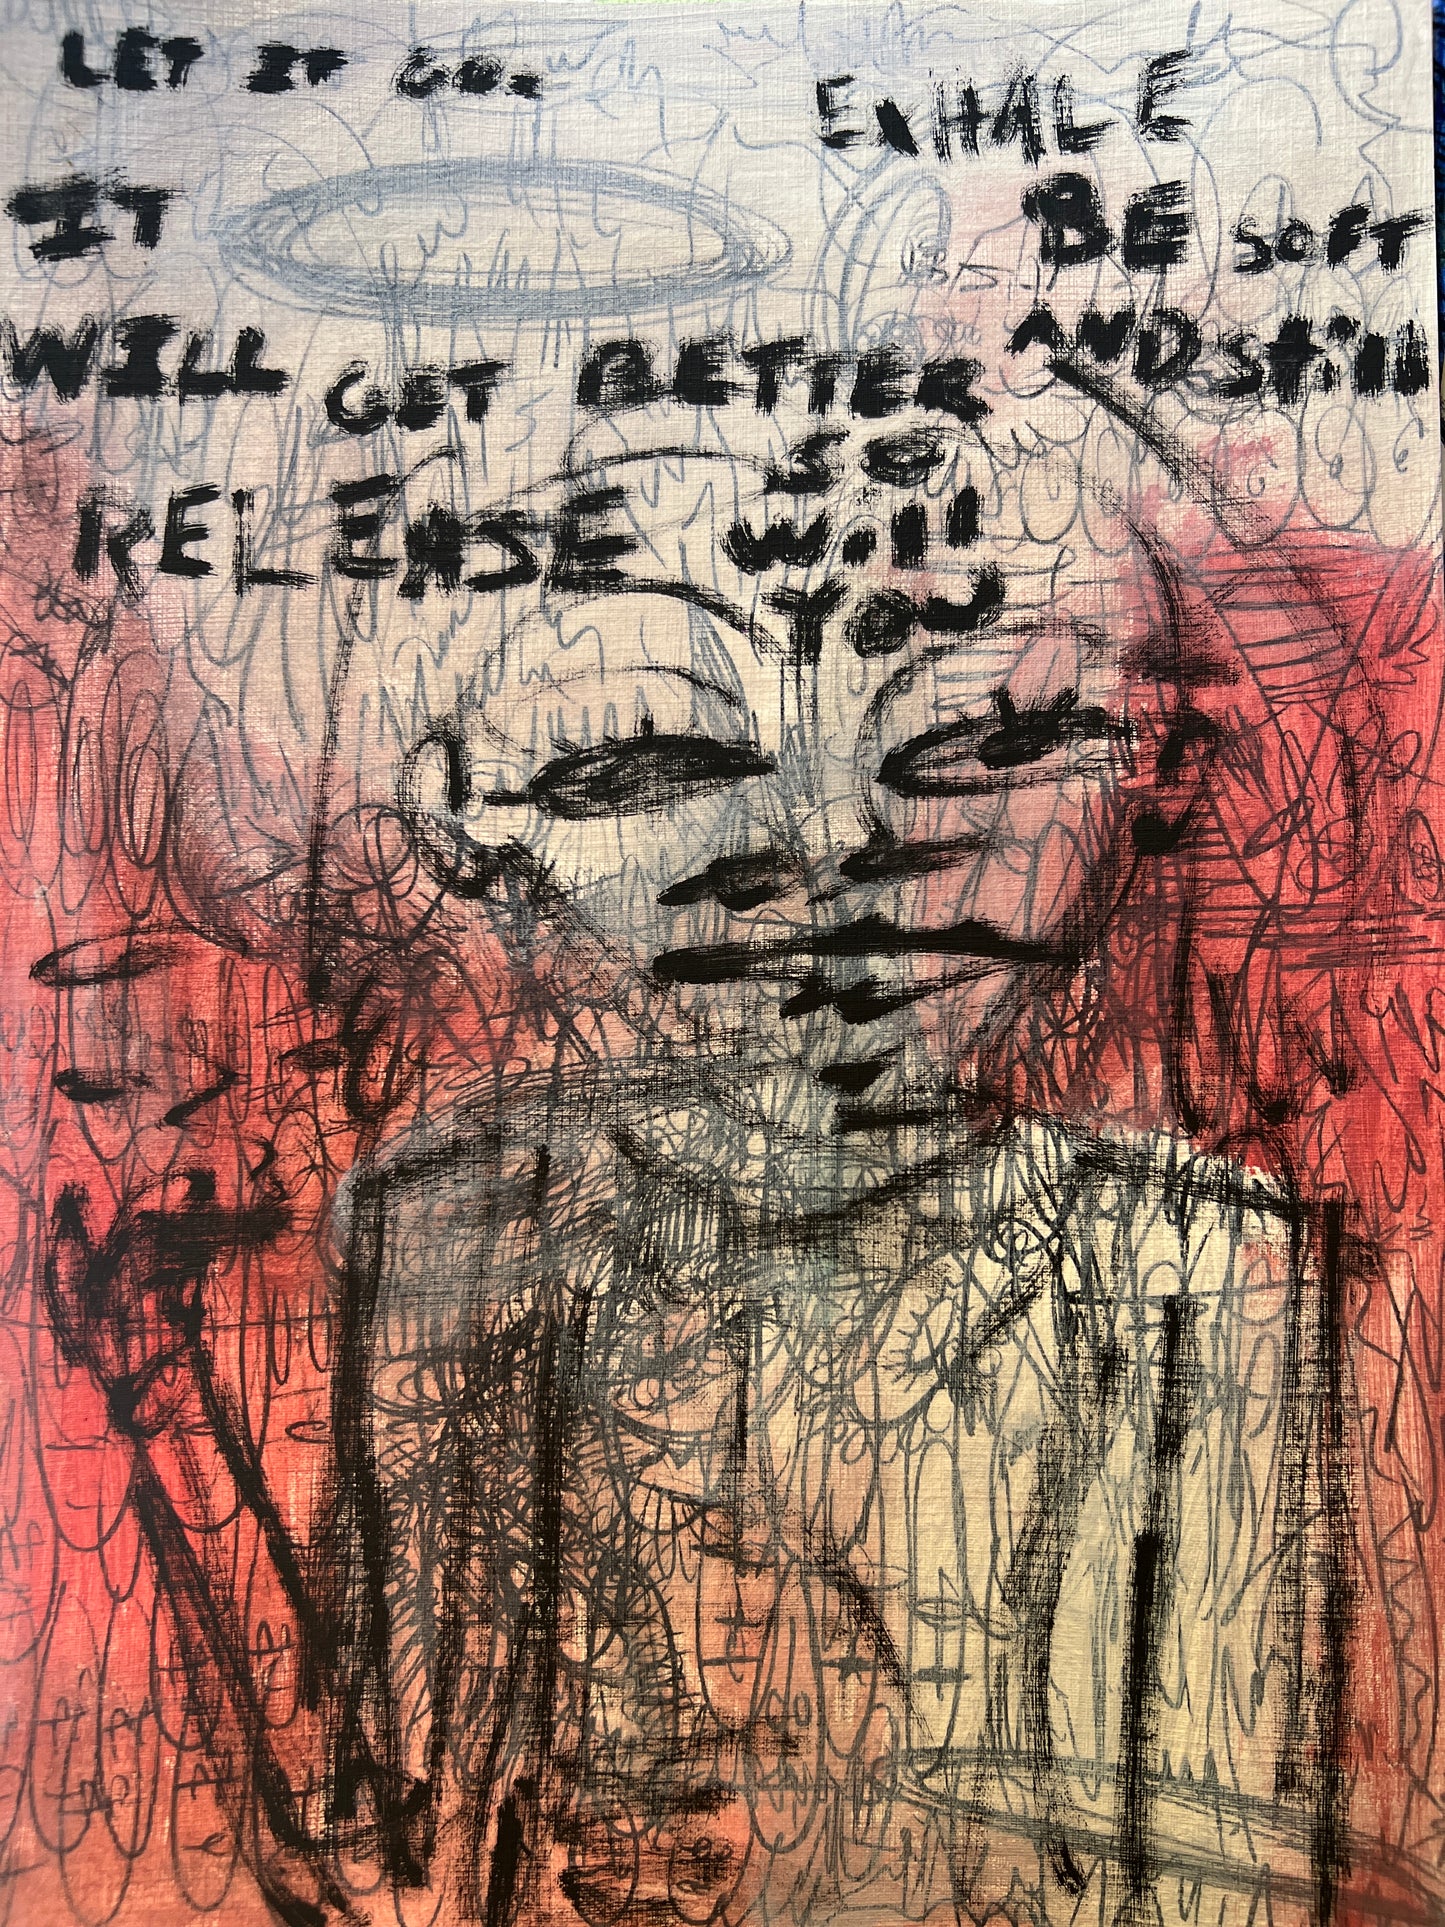 LET IT GO.
EXHALE
IT
BE SOFT
AND STILL
WILL GET BETTER
SO
RELEASE WILL
YOU